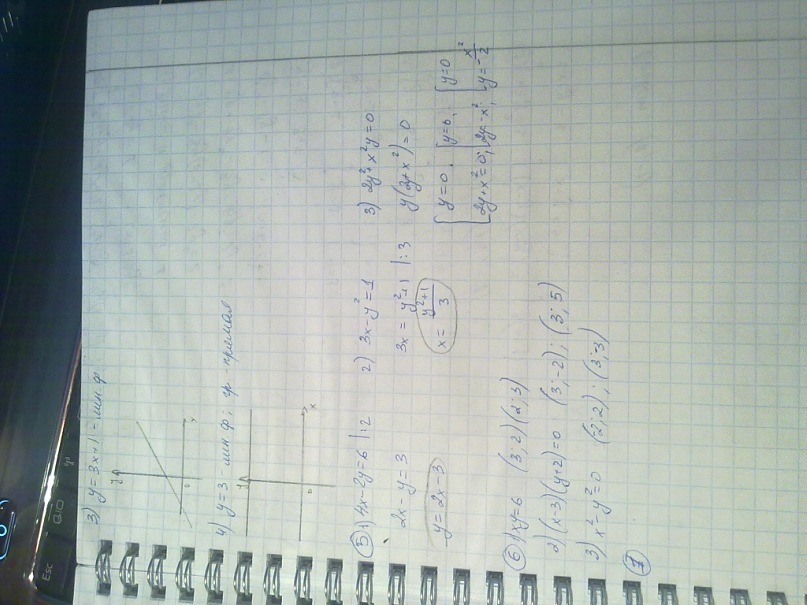 3) y = 3x+1 - лин. ф
y
0
4) y = 3 - лин. ф.; гр - прямая
y
0
x
5 1) 4x-2y=6 |:2
2x - y = 3
y = 2x - 3
2) 3x-y²=1
3x = y²+1 |:3
x = y²+1 / 3
3) 2y²+x²y=0
y(2y+x²)=0
y=0. [y=6, [y=0
2y+x²=0; 2y=-x²; y=-x²/2
6 1) xy=6 (3;2)(2;3)
2) (x-3)(y+2)=0 (3;-2); (3;5)
3) x²-y²=0 (2;2); (3;-3)
7
Esc